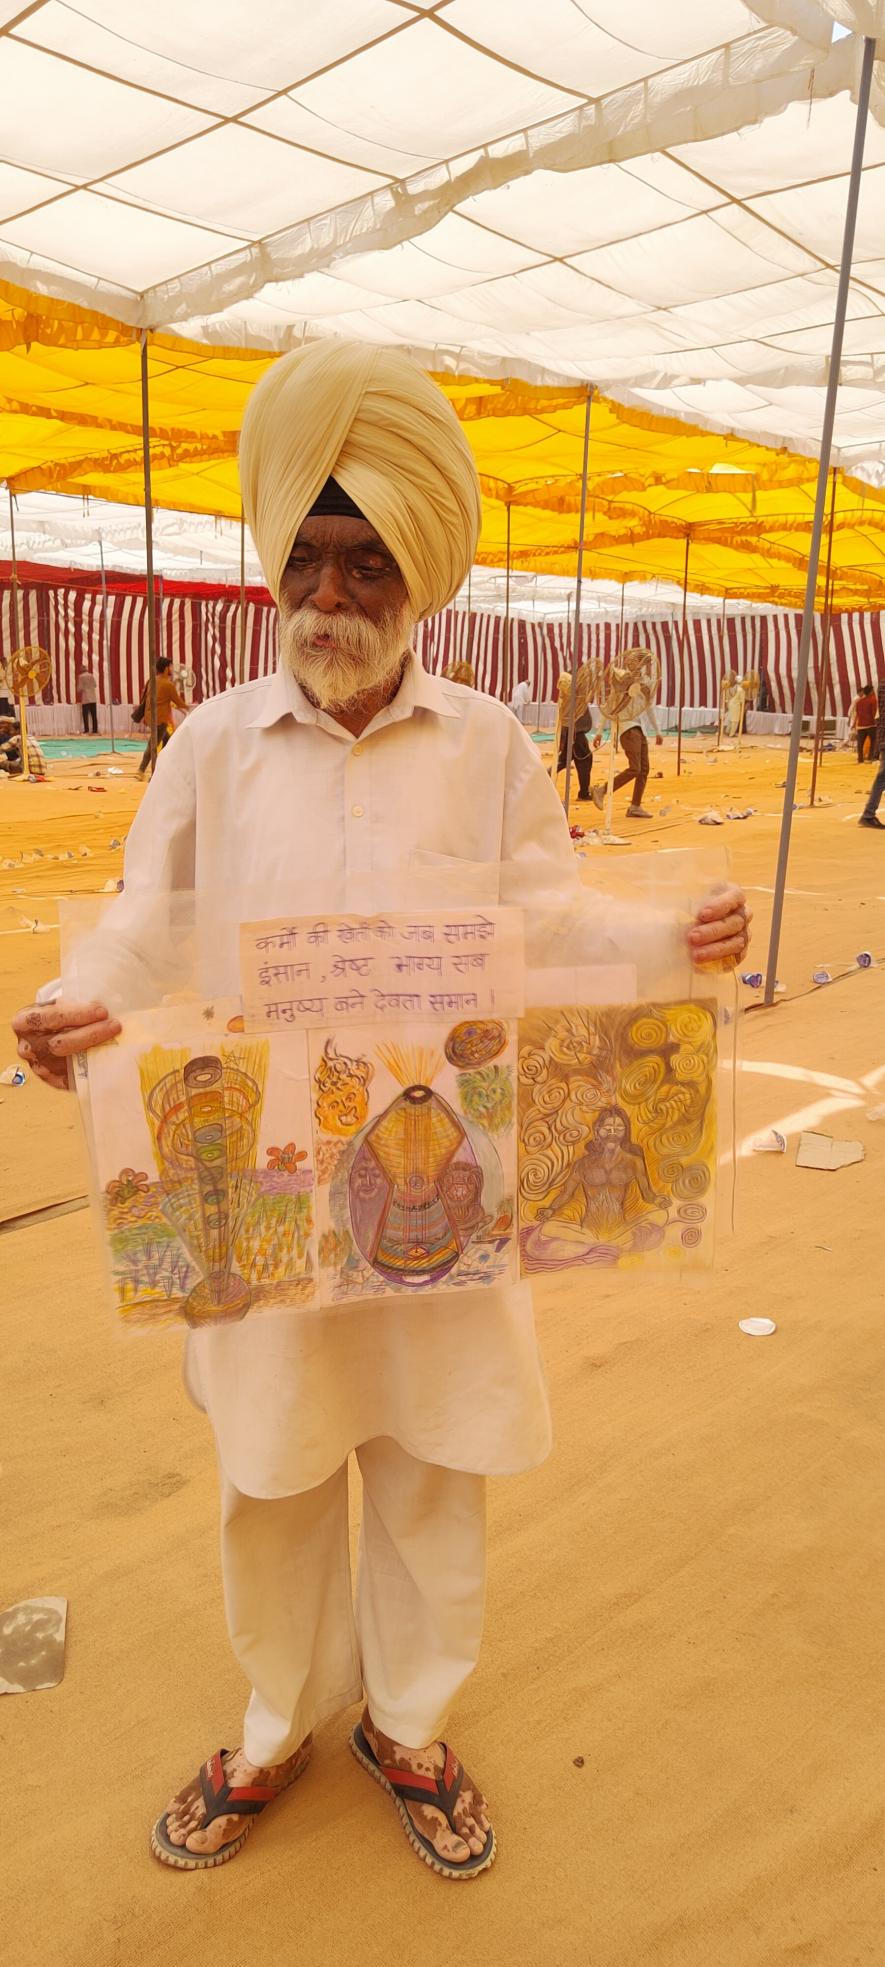 कर्मो की खेती को जब समझे
इंसान , श्रेष्ट भाग्य सब
मनुष्य बने देवता समान ।